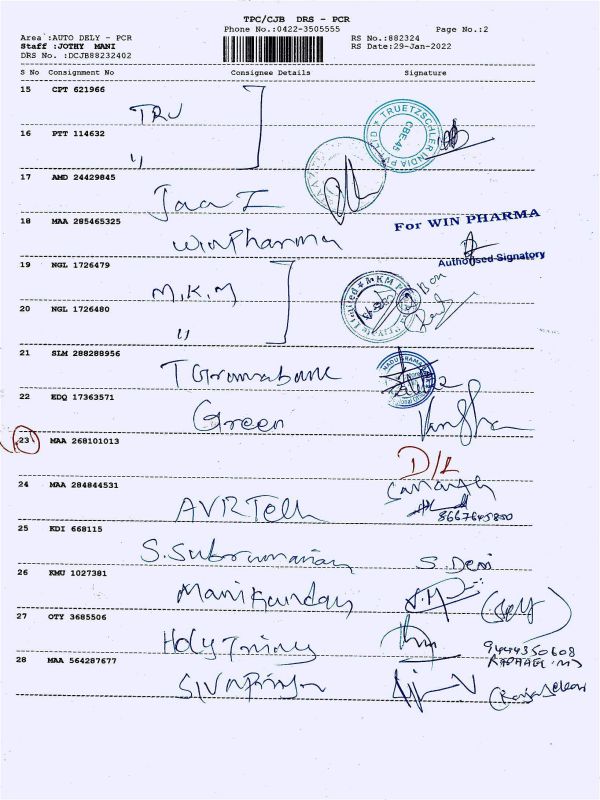 TPC/CJB DRS - PCR
Phone No.:0422-3505555 Page No.:2
Area :AUTO DELY - PCR RS No.:882324
Staff :JOTHY MANI RS Date:29-Jan-2022
DRS No. :DCJB88232402
S No Consignment No Consignee Details Signature
15 CPT 621966
TRU
TRUETZSCHLER INDIA PVT LTD
CBE-45
16 PTT 114632
"
17 AMD 24429845
18 MAA 285465325
For WIN PHARMA
WinPharma
Authorised Signatory
19 NGL 1726479
M.K.M
20 NGL 1726480
"
21 SLM 288288956
22 EDQ 17363571
Green
23 MAA 268101013
D/L
24 MAA 284844531
AVR Tech
8667645850
25 KDI 668115
S. Subramanian S. Devi
26 KMU 1027381
Manikandan (Self)
27 OTY 3685506
Holy Trinity
9444350608
28 MAA 564287677